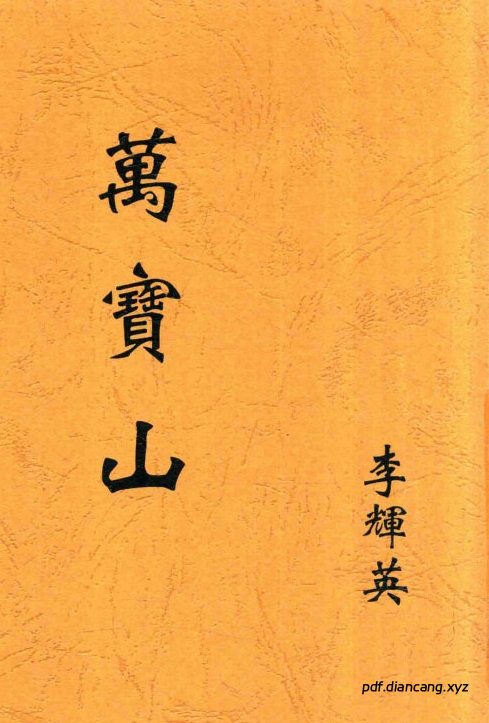 萬寶山
李輝英
pdf.diancang.xyz